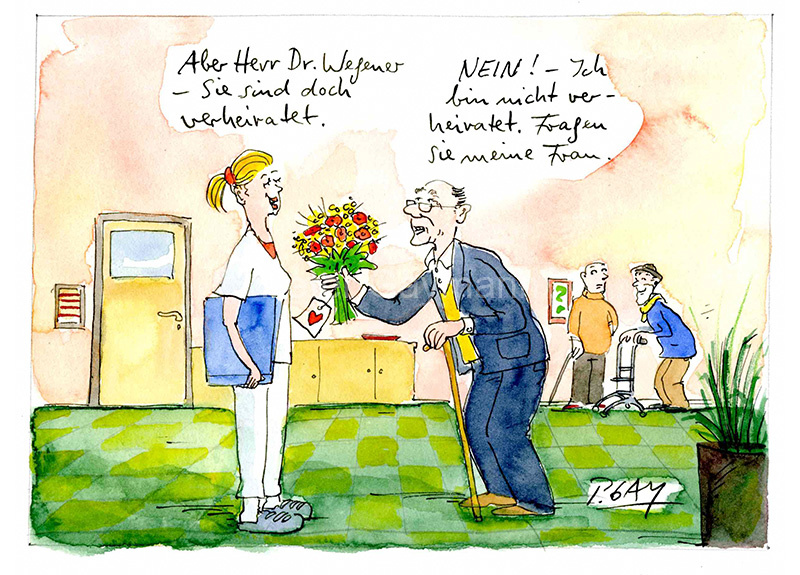 Aber Herr Dr. Wegener
- Sie sind doch
verheiratet.
NEIN! - Ich
bin nicht ver-
heiratet. Fragen
Sie meine Frau.
??
P. GAY